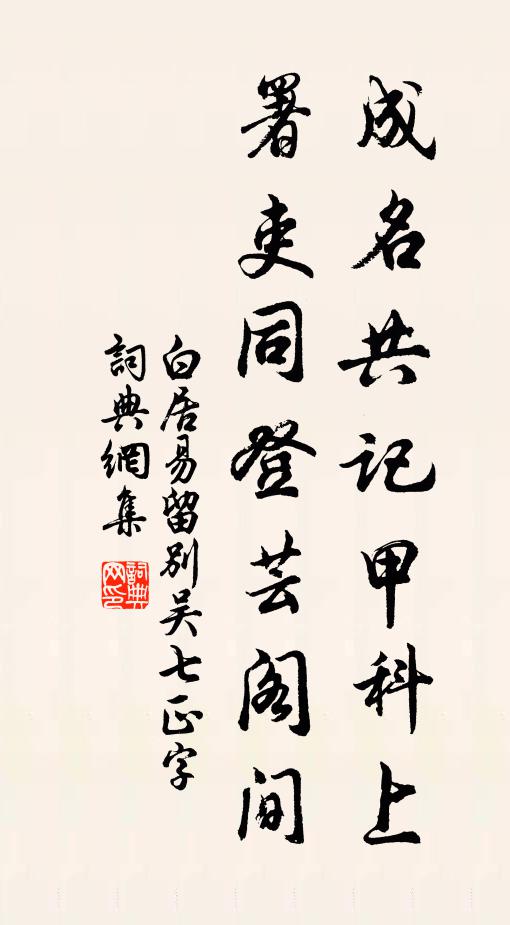 成名共記甲科上
署吏同登芸閣間
白居易留別吴七正字
詞典網集
詞典网印